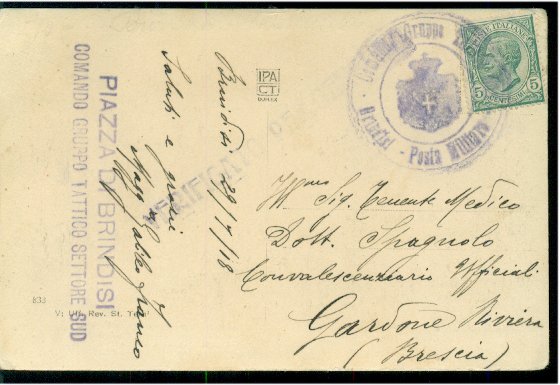 PIAZZA DI BRINDISI
COMANDO GRUPPO TATTICO SETTORE SUD
Brindisi 29/7/18
Saluti e grazie
Magg.
IPA
CT
VERIFICATO
Brindisi - Posta Militare
POSTE ITALIANE
5 CENTESIMI 5
Sig. Tenente Medico
Dott. Spagnolo
Convalescenziario Ufficiali
Gardone Riviera
(Brescia)
833
Rev. St.